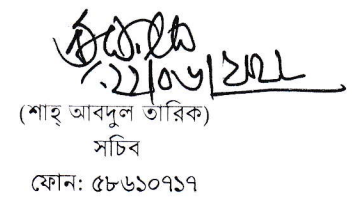 ২২/০৬/২০২২
(শাহ্ আবদুল তারিক)
সচিব
ফোন: ৫৮৬১০৭১৭